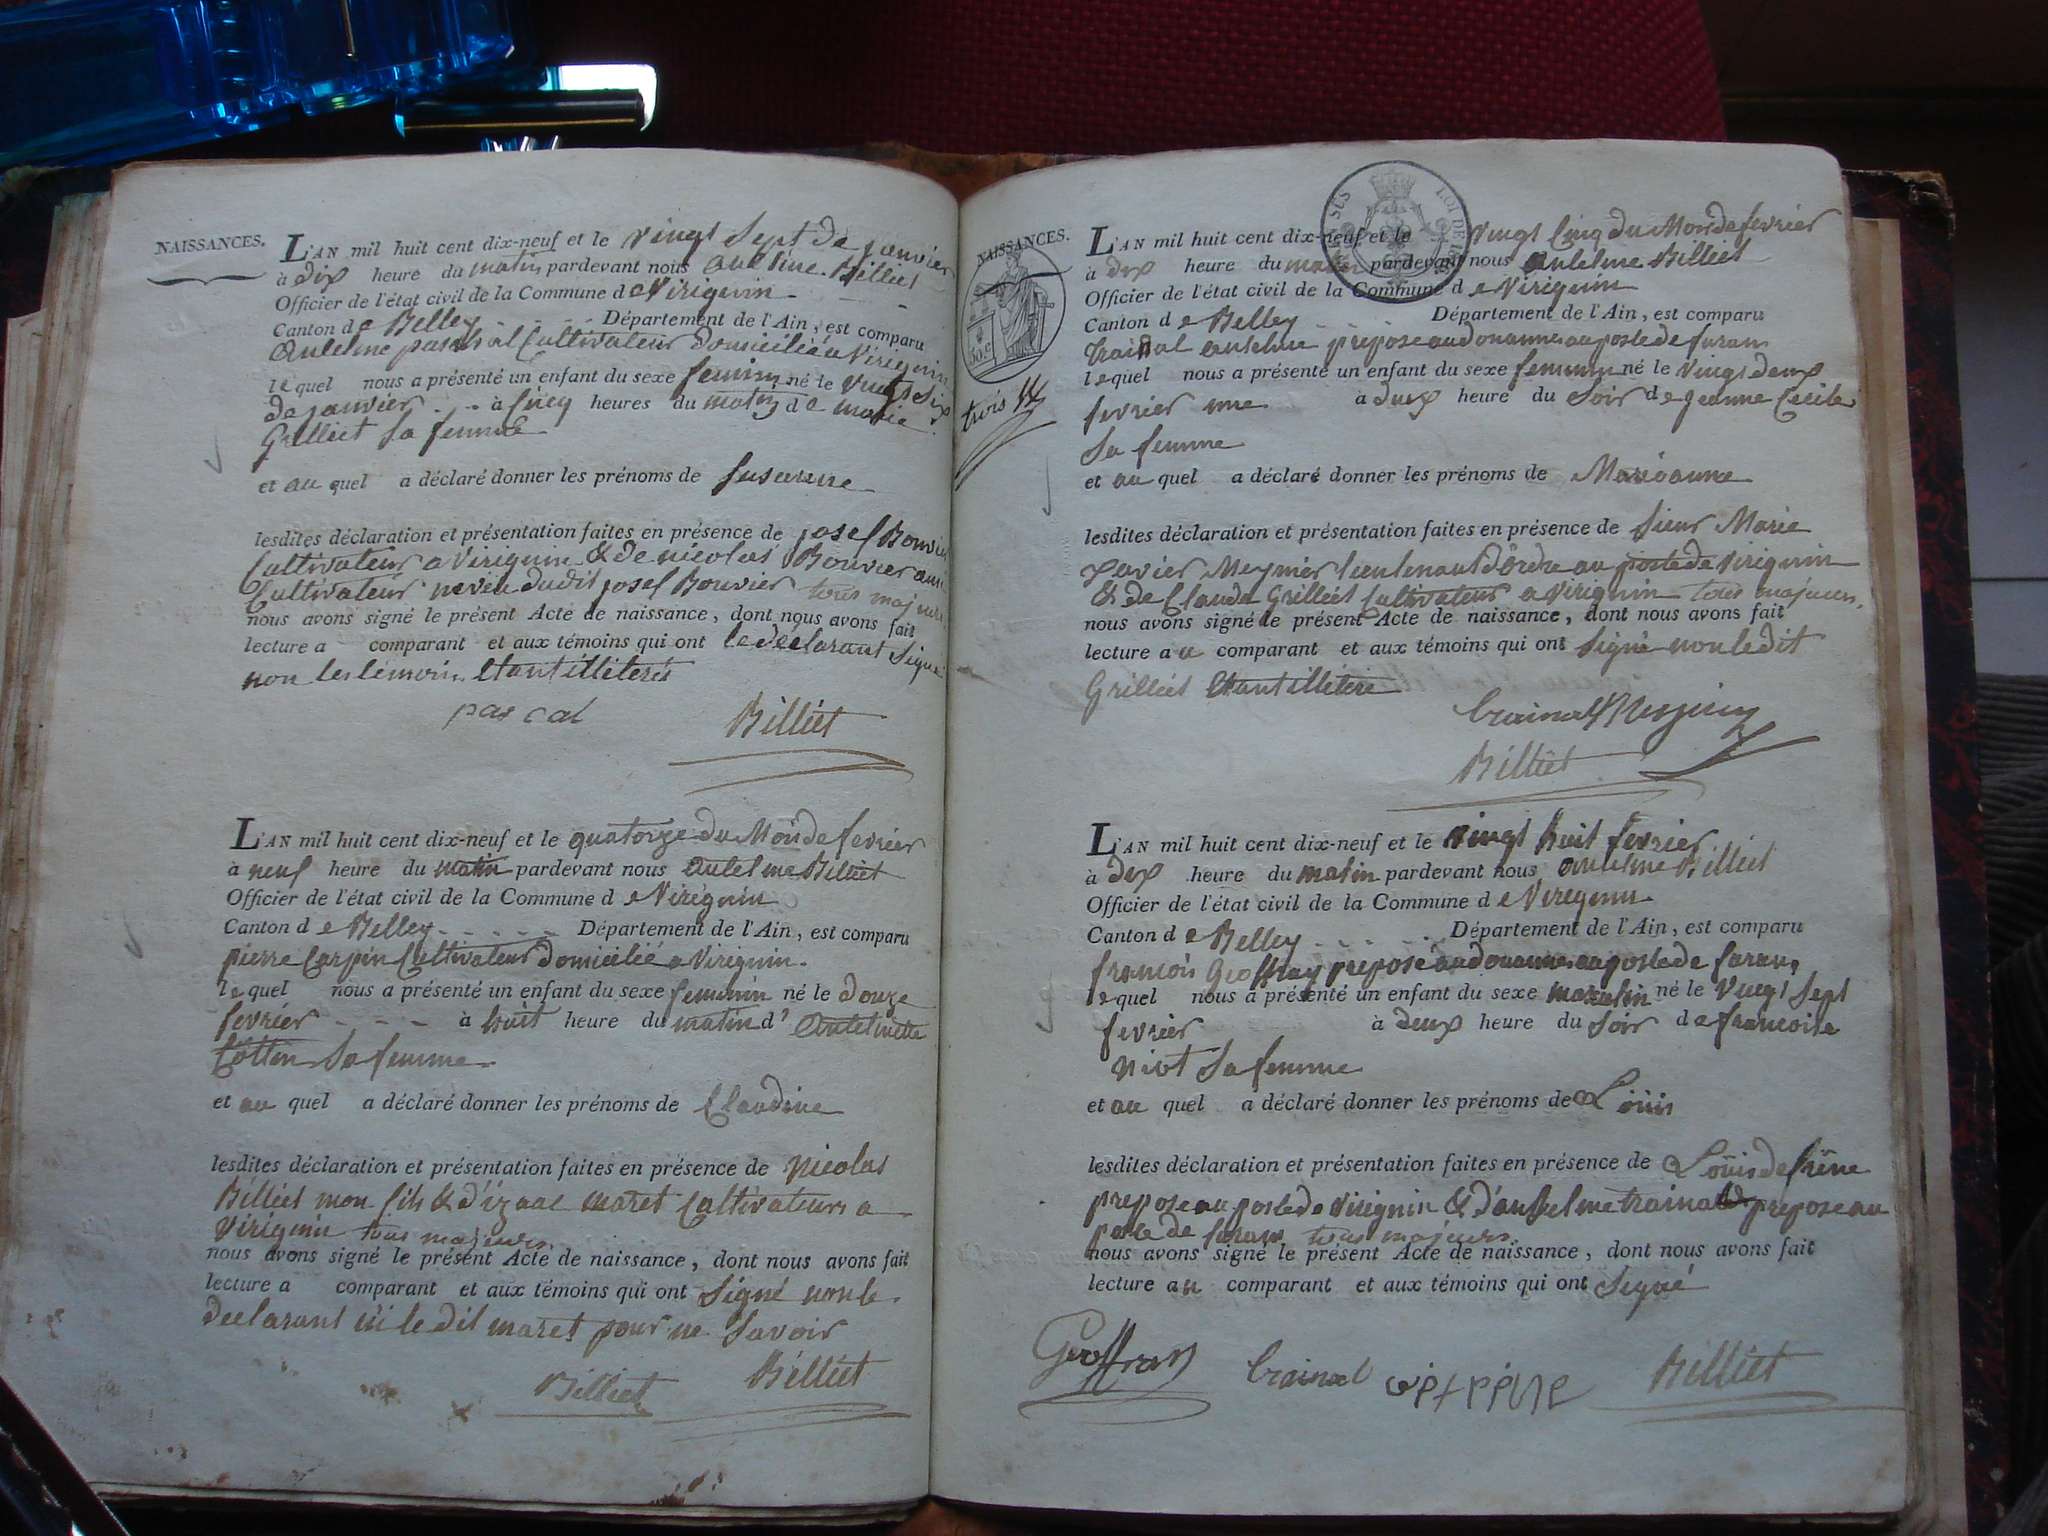 NAISSANCES.
L'AN mil huit cent dix-neuf et le vingt sept de janvier
à dix heure du matin pardevant nous anthelme Billiet
Officier de l'état civil de la Commune de Virignin
Canton de Belley Département de l'Ain, est comparu
Antelme paschal Cultivateur domicilié a Virignin
lequel nous a présenté un enfant du sexe feminin né le vingt six
de janvier à cinq heures du matin de marie
Grilliet sa femme
et au quel a déclaré donner les prénoms de susanne
lesdites déclaration et présentation faites en présence de josef Bouvier
Cultivateur a Virignin & de nicolas Bouvier aussi
Cultivateur neveu dudit josef Bouvier tous majeurs
nous avons signé le présent Acte de naissance, dont nous avons fait
lecture a comparant et aux témoins qui ont le déclarant signé
non les témoins étant illiterés
pascal Billiet
L'AN mil huit cent dix-neuf et le quatorze du Mois de fevrier
à neuf heure du matin pardevant nous antelme Billiet
Officier de l'état civil de la Commune de Virignin
Canton de Belley Département de l'Ain, est comparu
pierre Carpin Cultivateur domicilié a Virignin.
lequel nous a présenté un enfant du sexe feminin né le douze
fevrier à huit heure du matin d'Antelmette
Cottin sa femme.
et au quel a déclaré donner les prénoms de Claudine
lesdites déclaration et présentation faites en présence de nicolas
Billiet mon fils & d'izaac maret Cultivateurs a
Virignin tous majeurs
nous avons signé le présent Acte de naissance, dont nous avons fait
lecture a comparant et aux témoins qui ont signé non le
declarant ni le dit maret pour ne savoir
Billiet Billiet
NAISSANCES.
30.c
trois
L'AN mil huit cent dix-neuf et le vingt cinq du Mois de fevrier
à dix heure du matin pardevant nous antelme Billiet
Officier de l'état civil de la Commune de Virignin
Canton de Belley Département de l'Ain, est comparu
trainal antelme preposé au douannes au poste de furans
lequel nous a présenté un enfant du sexe feminin né le vingt deux
fevrier à deux heure du soir de jeanne Cecile
sa femme
et au quel a déclaré donner les prénoms de Marieanne
lesdites déclaration et présentation faites en présence de sieur Marie
xavier Meynier lieutenant d'ordre au poste de virignin
& de Claude Grilliet Cultivateur a virignin tous majeurs,
nous avons signé le présent Acte de naissance, dont nous avons fait
lecture au comparant et aux témoins qui ont signé non ledit
Grilliet étant illiteré
trainal
Billiet
L'AN mil huit cent dix-neuf et le vingt huit fevrier
à dix heure du matin pardevant nous antelme Billiet
Officier de l'état civil de la Commune de Virignin
Canton de Belley Département de l'Ain, est comparu
francois Geoffray preposé au douannes au poste de furans
lequel nous a présenté un enfant du sexe masculin né le vingt sept
fevrier à deux heure du soir de francoise
niot sa femme
et au quel a déclaré donner les prénoms de Loüis
lesdites déclaration et présentation faites en présence de Loüis de frêne
preposé au poste de virignin & d'antelme trainal preposé au
poste de furans tous majeurs
nous avons signé le présent Acte de naissance, dont nous avons fait
lecture au comparant et aux témoins qui ont signé
Geoffray trainal Billiet